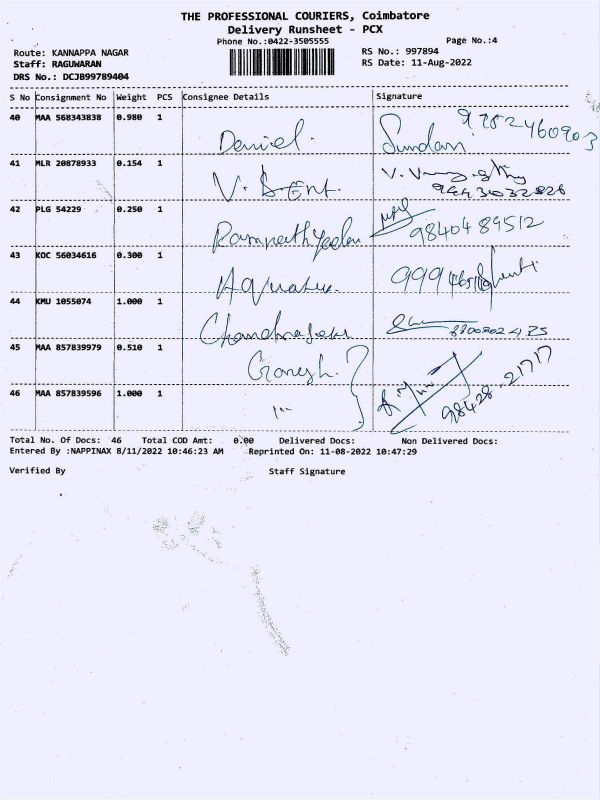 THE PROFESSIONAL COURIERS, Coimbatore
Delivery Runsheet - PCX
Phone No.:0422-3505555
Page No.:4
Route: KANNAPPA NAGAR
RS No.: 997894
Staff: RAGUWARAN
RS Date: 11-Aug-2022
DRS No.: DCJB99789404
S No Consignment No Weight PCS Consignee Details Signature
40 MAA 568343838 0.980 1
Daniel. Sundari
41 MLR 20878933 0.154 1
42 PLG 54229 0.250 1
98404 89512
43 KOC 56034616 0.300 1
44 KMU 1055074 1.000 1
45 MAA 857839979 0.510 1
Ganesh.
46 MAA 857839596 1.000 1
98428-21717
Total No. Of Docs: 46 Total COD Amt: 0.00 Delivered Docs: Non Delivered Docs:
Entered By :NAPPINAX 8/11/2022 10:46:23 AM Reprinted On: 11-08-2022 10:47:29
Verified By Staff Signature